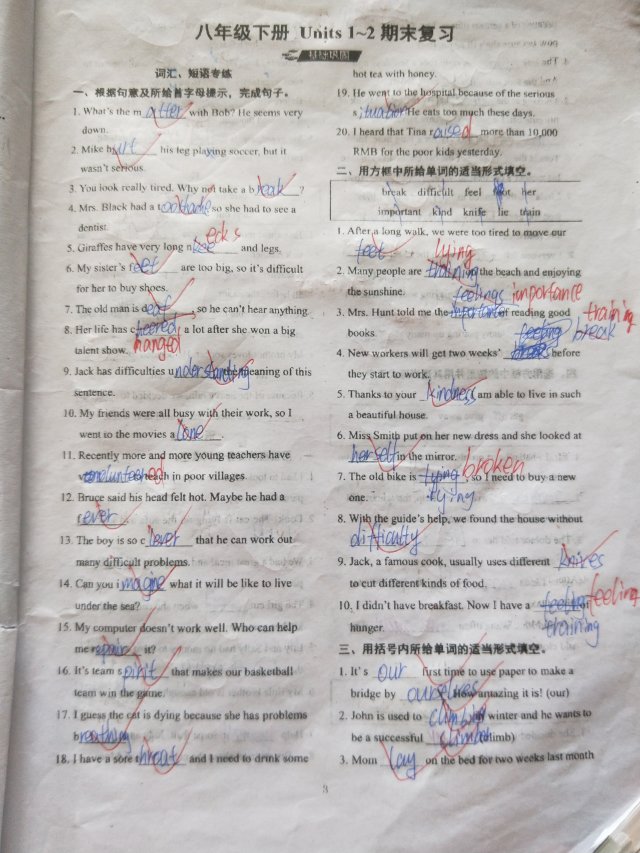 八年级下册 Units 1~2 期末复习
基础巩固
词汇、短语专练
一、根据句意及所给首字母提示，完成句子。
1. What's the matter with Bob? He seems very
down.
2. Mike hurt his leg playing soccer, but it
wasn't serious.
3. You look really tired. Why not take a break?
4. Mrs. Black had a toothache so she had to see a
dentist.
ecks
5. Giraffes have very long n and legs.
6. My sister's feet are too big, so it's difficult
for her to buy shoes.
7. The old man is deaf, so he can't hear anything.
8. Her life has c a lot after she won a big
talent show. hanged
9. Jack has difficulties understanding the meaning of this
sentence.
10. My friends were all busy with their work, so I
went to the movies alone.
11. Recently more and more young teachers have
volunteered teach in poor villages
12. Bruce said his head felt hot. Maybe he had a
fever.
13. The boy is so clever that he can work out
many difficult problems.
14. Can you imagine what it will be like to live
under the sea?
15. My computer doesn't work well. Who can help
me repair it?
16. It's team spirit that makes our basketball
team win the game.
17. I guess the cat is dying because she has problems
breathing
18. I have a sore throat and I need to drink some
hot tea with honey.
19. He went to the hospital because of the serious
situation He eats too much these days.
20. I heard that Tina raised more than 10,000
RMB for the poor kids yesterday.
二、用方框中所给单词的适当形式填空。
break difficult feel foot her
important kind knife lie train
1. After a long walk, we were too tired to move our
feet. lying
2. Many people are training on the beach and enjoying
the sunshine. feelings importance
3. Mrs. Hunt told me the importance of reading good training
books. feeling break
4. New workers will get two weeks' before
they start to work.
5. Thanks to your kindness am able to live in such
a beautiful house.
6. Miss Smith put on her new dress and she looked at
herself in the mirror.
7. The old bike is broken, so I need to buy a new
one. lying
8. With the guide's help, we found the house without
difficulty
9. Jack, a famous cook, usually uses different knives
to cut different kinds of food.
10. I didn't have breakfast. Now I have a feeling of
hunger. training
三、用括号内所给单词的适当形式填空。
1. It's our first time to use paper to make a
bridge by ourselves. How amazing it is! (our)
2. John is used to climbing in winter and he wants to
be a successful climber (climb)
3. Mom lay on the bed for two weeks last month
3